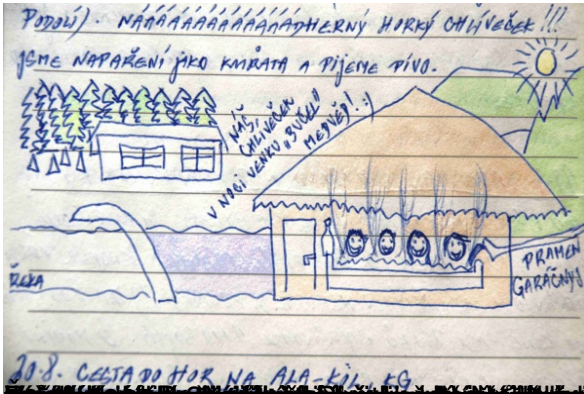 PODOLÍ) NÁÁÁÁÁÁÁÁÁÁÁÁÁDHERNÝ HORKÝ CHLÍVEČEK!!!
JSME NAPAŘENÍ JAKO KMÍŘATA A PIJEME PIVO.
NÁŠ CHLÍVEČEK
V NOCI VENKU „BUČELI“ MEDVĚDI! :)
ŘEKA
PRAMEN
GARÁČNYJ
20.8. CESTA DO HOR NA ALA-KÖL, KG